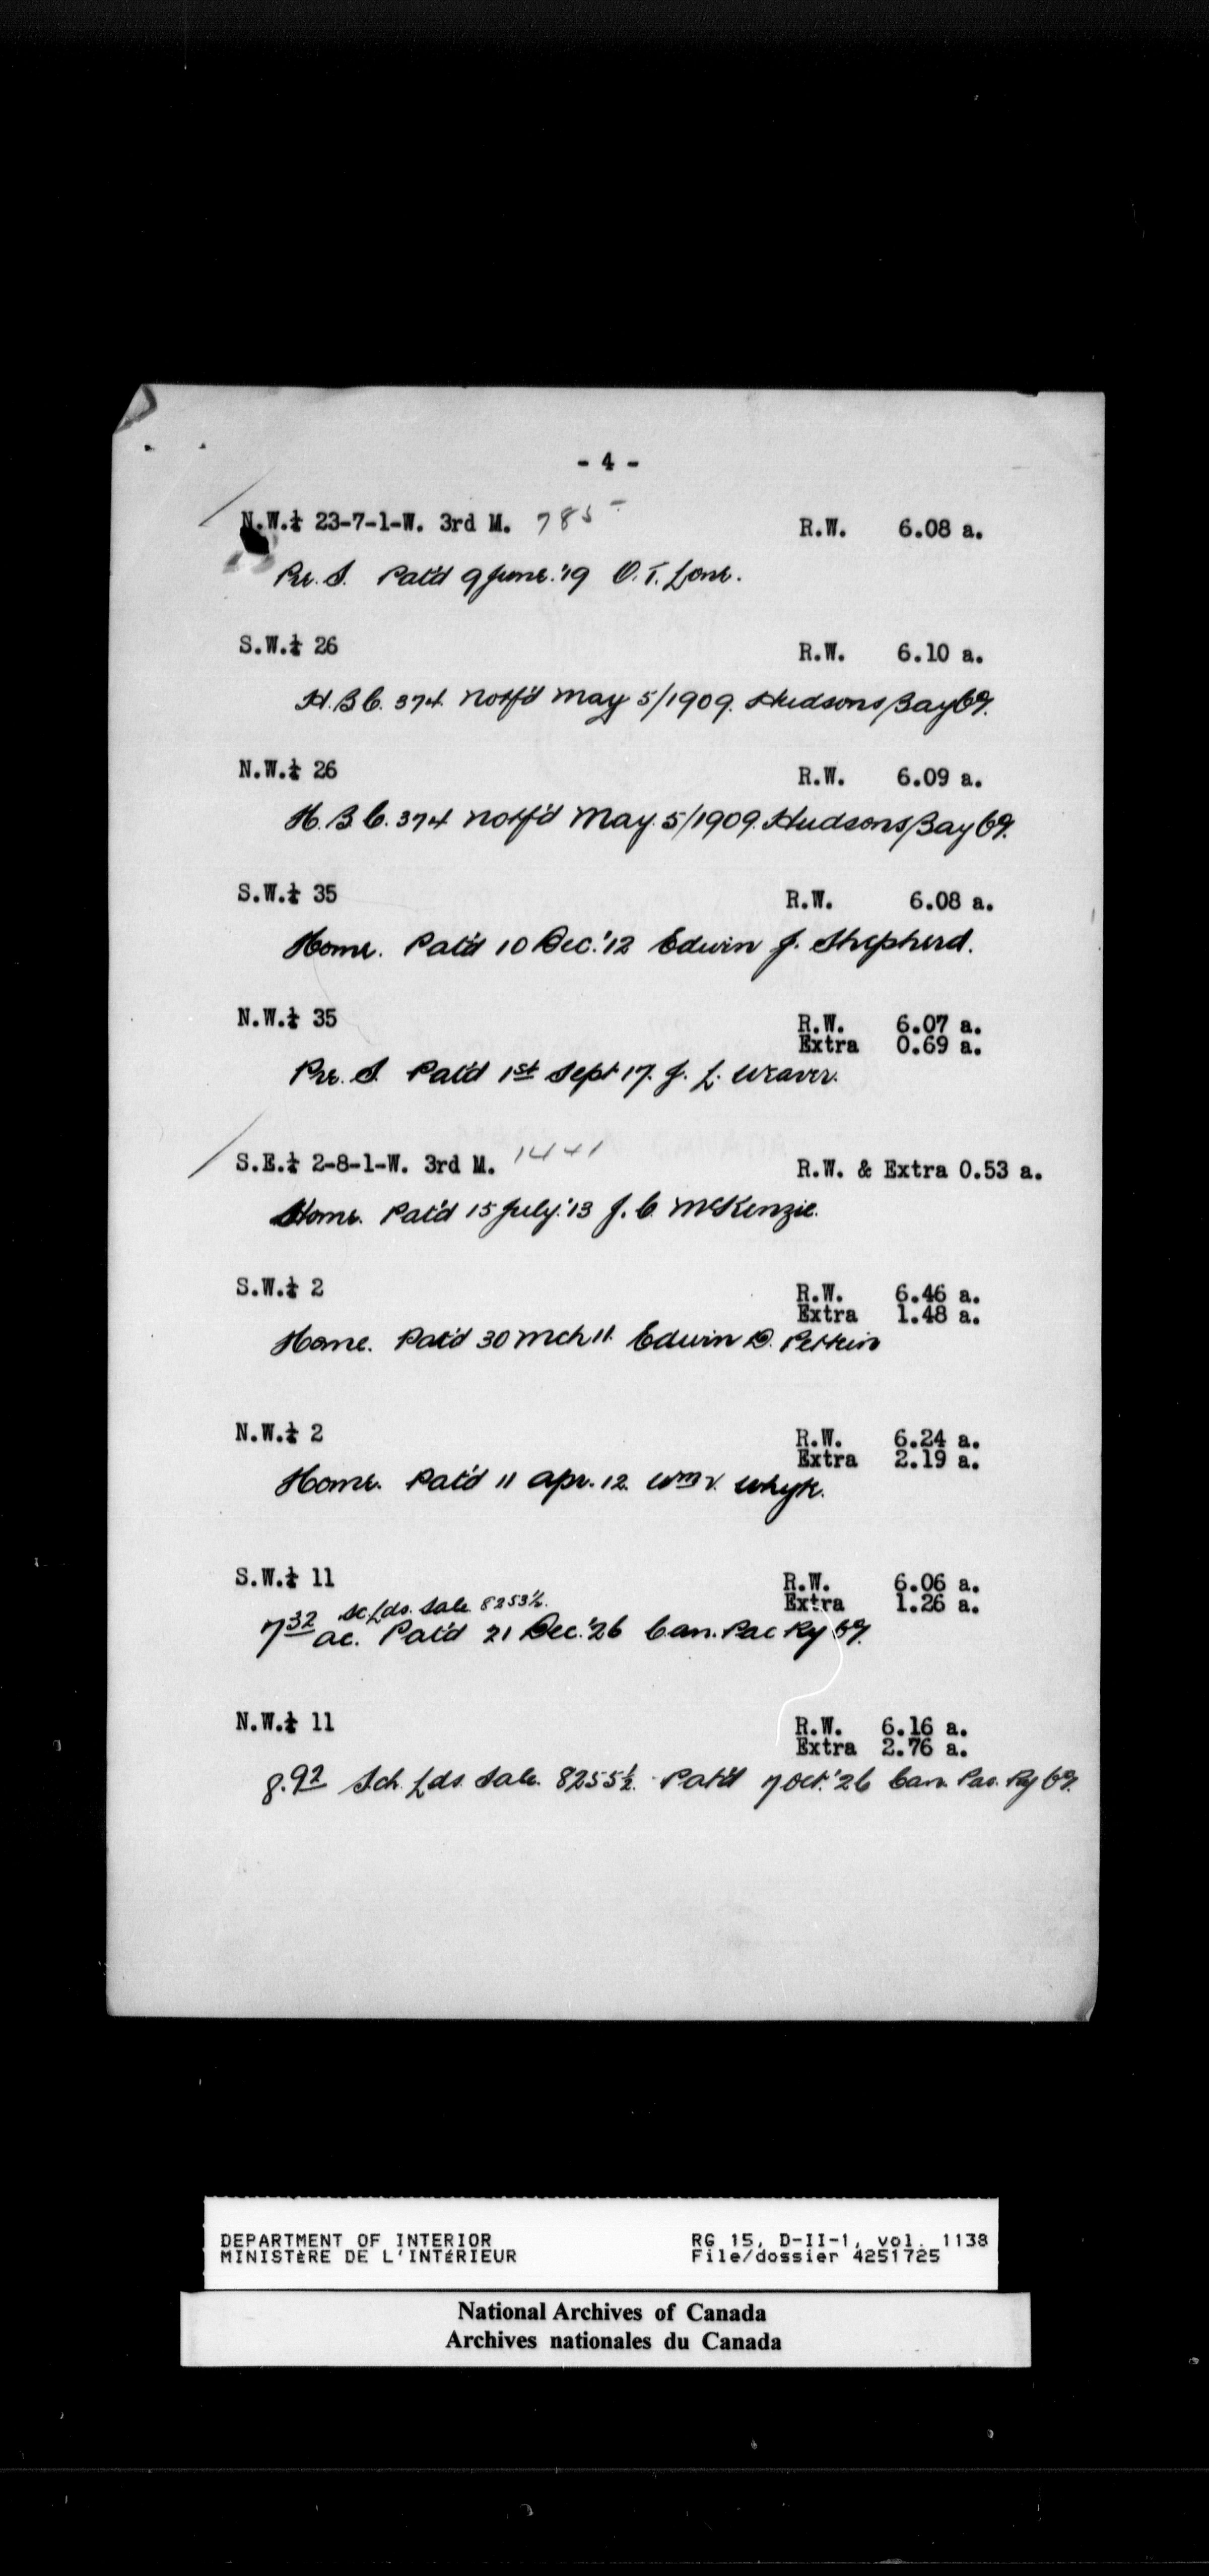 - 4 -
N.W.¼ 23-7-1-W. 3rd M. 785 R.W. 6.08 a.
Pre. S. Pat'd 9 June.'19 O. T. Lone.
S.W.¼ 26 R.W. 6.10 a.
H. B C. 374 Notf'd May 5/1909. Hudsons Bay Co.
N.W.¼ 26 R.W. 6.09 a.
H. B C. 374 Notf'd May. 5/1909. Hudsons Bay Co.
S.W.¼ 35 R.W. 6.08 a.
Home. Pat'd 10 Dec.'12 Edwin J. Shepherd.
N.W.¼ 35 R.W. 6.07 a.
Extra 0.69 a.
Pre. S. Pat'd 1st Sept 17. J. L. Weaver.
S.E.¼ 2-8-1-W. 3rd M. 1441 R.W. & Extra 0.53 a.
Home. Pat'd 15 July.'13 J. C. McKenzie.
S.W.¼ 2 R.W. 6.46 a.
Extra 1.48 a.
Home. Pat'd 30 Mch 11. Edwin D.
N.W.¼ 2 R.W. 6.24 a.
Extra 2.19 a.
Home. Pat'd 11 Apr. 12. Wm V. Whyk.
S.W.¼ 11 R.W. 6.06 a.
Extra 1.26 a.
Sc Lds. Sale. 8253½.
7 32 ac. Pat'd 21 Dec.'26 Can. Pac Ry Co.
N.W.¼ 11 R.W. 6.16 a.
Extra 2.76 a.
8.92 Sch. Lds. Sale. 8255½. Pat'd 7 Oct.'26 Can. Pac. Ry Co.
DEPARTMENT OF INTERIOR RG 15, D-II-1, vol. 1138
MINISTÈRE DE L'INTÉRIEUR File/dossier 4251725
National Archives of Canada
Archives nationales du Canada